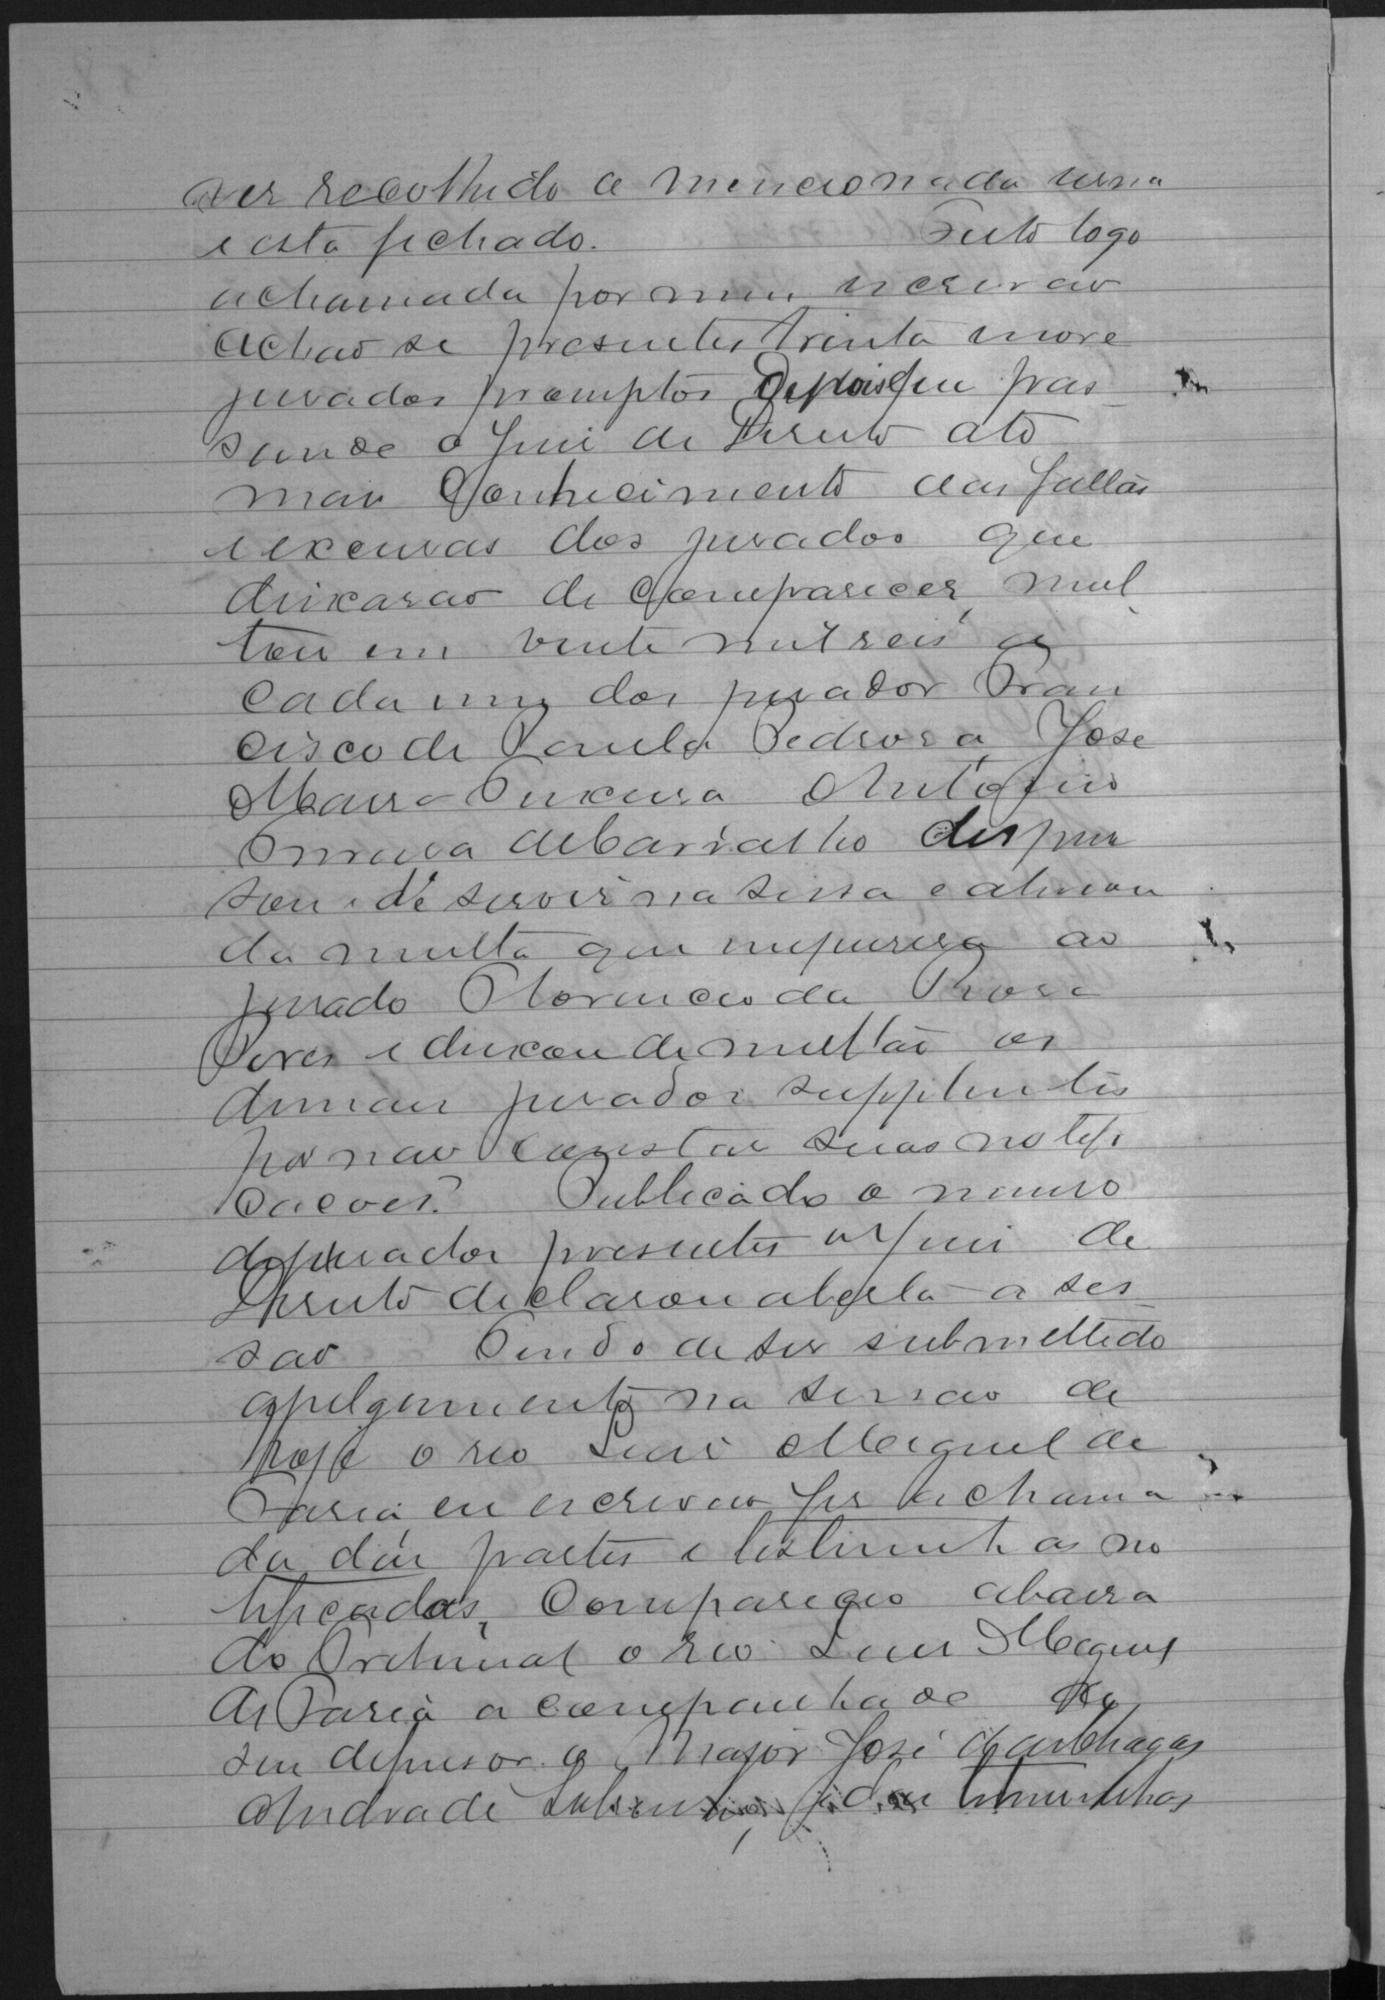 ser recolhido a mencionada urna
e esta fechado. Feito logo
a chamada por mim escrivão
achão se presentes trinta nove
jurados promptos depois que pas
sande o Juiz de Direito ato
mar Conhecimento das faltas
e excusas dos jurados que
deixarão de Comparecer, mul
tou em vente mil reis a
cada um dos jurador Fran
cisco de Paula Pedrosa, José
Maria Teixeira Antonio
Correia de Carvalho dispen
sou de servir na sessa e alivou
da multa que impusera ao
jurado Florencio da Rosa
Pires e deixou de multar os
demais jurador supplentes
por nao constar suas notifi
cacoes. Publicado o numero
de jurador presentes o Juiz de
Direito declarou aberta a ses
sao Tendo de ser submettido
a julgamento na sessao de
hoje o reo Luiz Miguel de
Faria, eu escrivao fiz a chama
da das partes e testimunhas no
tificadas, Compareceo abarra
do Tribunal o reo Luiz Miguel
de Faria a companhado de
seu defensor o Major José das Chagas
Andrade